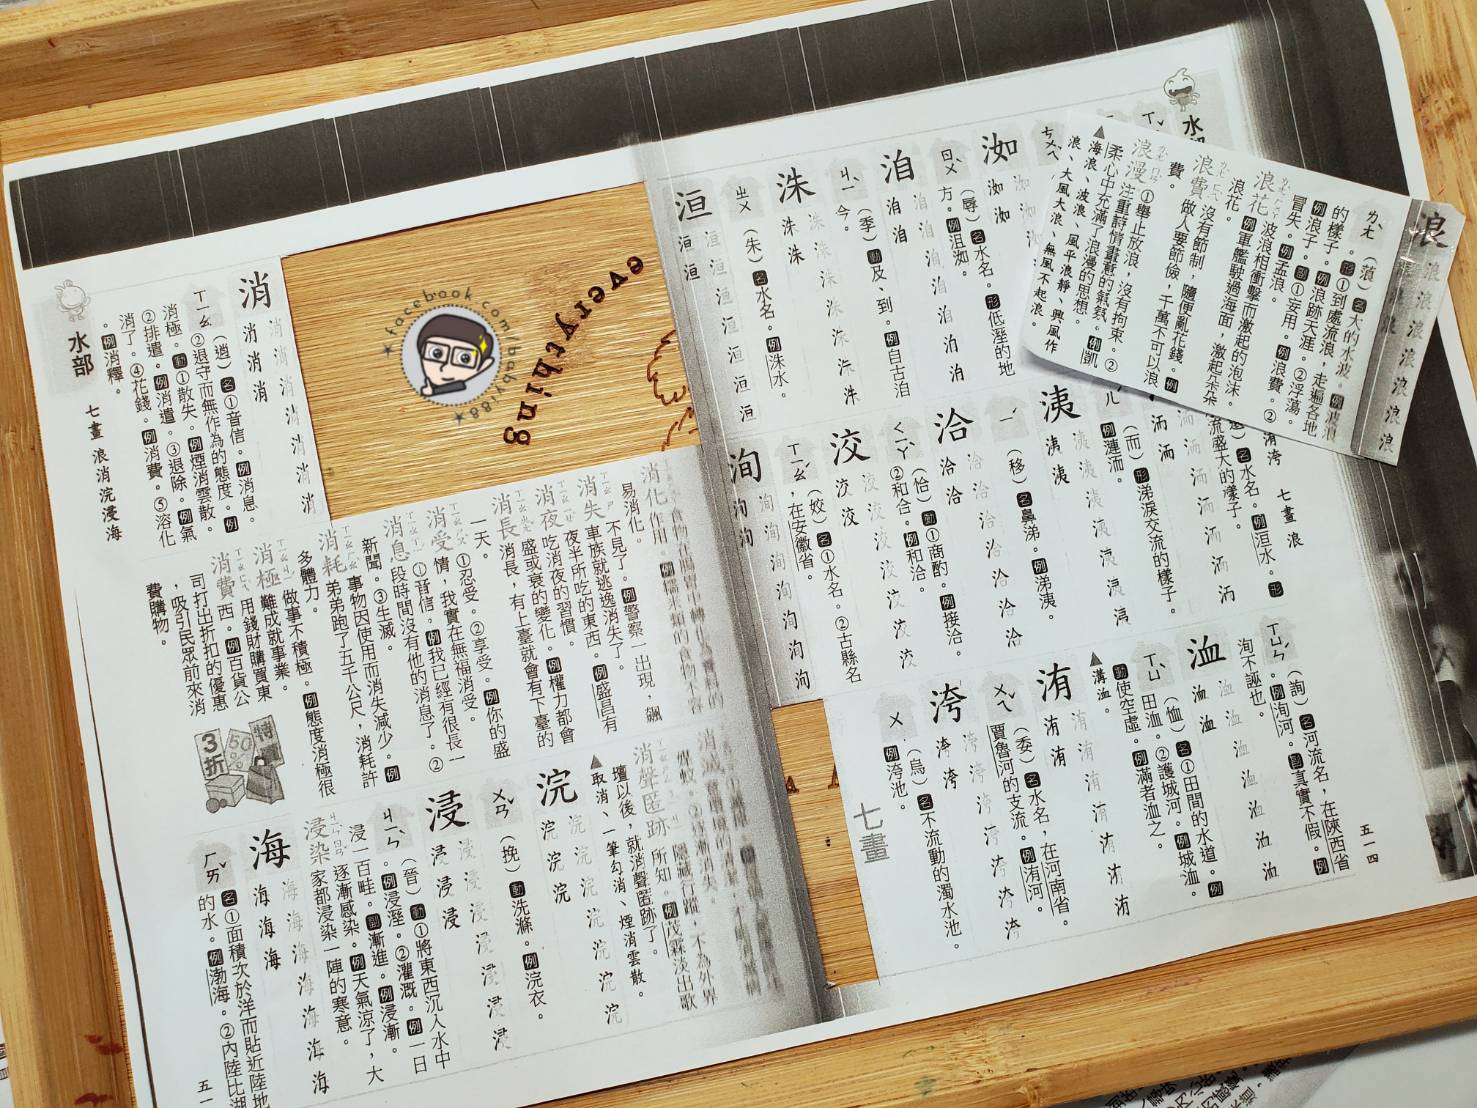 水部
ㄖㄨˋ
洳
洳
洳
(辱)名水名。形低溼的地
方。例沮洳。
洎
洎
洎
ㄐㄧˋ
(季)動及、到。例自古洎
今。
洙
洙
洙
ㄓㄨ
(朱)名水名。例洙水。
洹
洹
洹
洹
洹
名水名。例洹水。形
流盛大的樣子。
洏
(而)形涕淚交流的樣子。
例漣洏。
洟
洟
洟
(移)名鼻涕。例涕洟。
洽
洽
洽
ㄑㄧㄚˋ
(恰)動①商酌。例接洽。
②和合。例和洽。
洨
洨
洨
ㄒㄧㄠˊ
(姣)名①水名。②古縣名
,在安徽省。
洵
洵
洵
ㄒㄩㄣˊ
(詢)名河流名,在陝西省
。例洵河。副真實不假。例
洵不誣也。
洫
洫
洫
ㄒㄩˋ
(恤)名①田間的水道。例
田洫。②護城河。例城洫。
動使空虛。例滿者洫之。
▲溝洫。
洧
洧
洧
ㄨㄟˇ
(委)名水名,在河南省。
賈魯河的支流。例洧河。
洿
洿
洿
ㄨ
(烏)名不流動的濁水池。
例洿池。
七畫
七畫 浪
五一四
浪
浪
浪
浪
ㄌㄤˋ
(蒗)名大的水波。例波浪
的樣子。形①到處流浪,走遍各地
例浪子。例浪跡天涯。②浮蕩。
冒失。例孟浪。副①妄用。例浪費。②
浪花 波浪相衝擊而激起的泡沫。
浪花。例軍艦駛過海面,激起朵朵
浪費 沒有節制,隨便亂花錢。例
費。做人要節儉,千萬不可以浪
浪漫 ①舉止放浪,沒有拘束。②
注重詩情畫意的氣氛。例凱
柔心中充滿了浪漫的思想。
▲海浪、波浪、風平浪靜、興風作
浪、大風大浪、無風不起浪。
水部
七畫 浪消浣浸海
消
消
消
消
ㄒㄧㄠ
(逍)名①音信。例消息。
②退守而無作為的態度。例
消極。動①散失。例煙消雲散。
②排遣。例消遣。③退除。例氣
消了。④花錢。例消費。⑤溶化
。例消釋。
消化
作用。例糯米類的食物不容
易消化。
消失 不見了。例警察一出現,飆
車族就逃逸消失了。
消夜 夜半所吃的東西。例盛昌有
吃消夜的習慣。
消長 盛或衰的變化。例權力都會
消長,有上臺就會有下臺的
一天。
消受 ①忍受。②享受。例你的盛
情,我實在無福消受。
消息 ①音信。例我已經有很長一
段時間沒有他的消息了。②
新聞。③生滅。
消耗 事物因使用而消失減少。例
弟弟跑了五千公尺,消耗許
多體力。
消極 做事不積極。例態度消極很
難成就事業。
消費 用錢財購買東
西。例百貨公
司打出折扣的優惠
,吸引民眾前來消
費購物。
特價
50%
3折
消聲匿跡 隱藏行蹤,不為外界
所知。例茂霖淡出歌
壇以後,就消聲匿跡了。
▲取消、一筆勾消、煙消雲散。
浣
浣
浣
浣
ㄨㄢˇ
(挽)動洗滌。例浣衣。
浸
浸
浸
浸
ㄐㄧㄣˋ
(晉)動①將東西沉入水中
。例浸溼。②灌溉。例一日
浸一百畦。副漸進。例浸漸。
浸染 逐漸感染。例天氣涼了,大
家都浸染一陣的寒意。
海
海
海
海
ㄏㄞˇ
名①面積次於洋而貼近陸地
的水。例渤海。②內陸比湖
五一
everything
facebook.com/babyi88